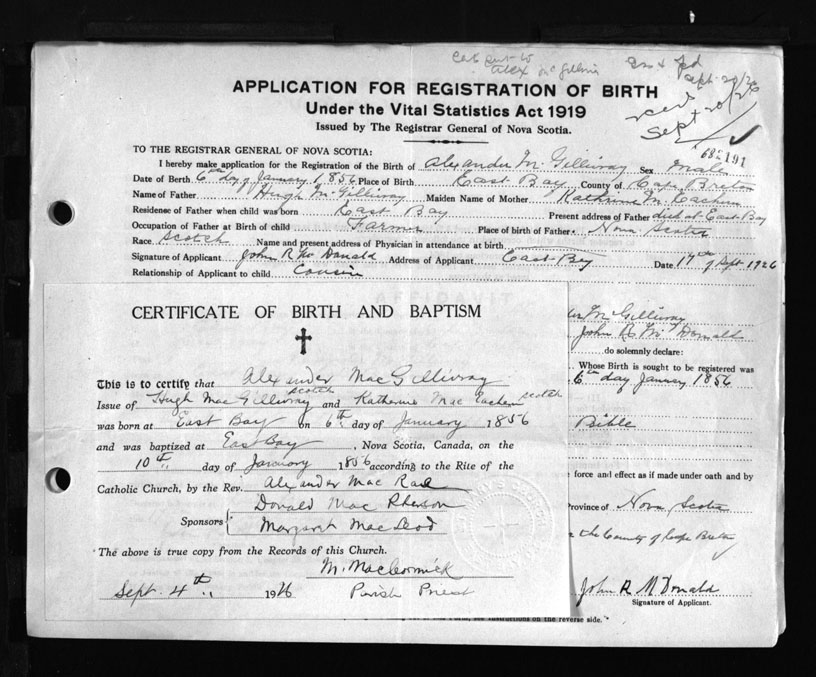 Cert sent to
Alex McGillivray
Sept 20/26
recd
Sept 20/26
APPLICATION FOR REGISTRATION OF BIRTH
Under the Vital Statistics Act 1919
Issued by The Registrar General of Nova Scotia.
682191
TO THE REGISTRAR GENERAL OF NOVA SCOTIA:
I hereby make application for the Registration of the Birth of Alexander McGillivray Sex male
Date of Birth 6th day of January 1856 Place of Birth East Bay County of Cape Breton
Name of Father Hugh McGillivray Maiden Name of Mother Katherine McEachern
Residence of Father when child was born East Bay Present address of Father died at East Bay
Occupation of Father at Birth of child Farmer Place of birth of Father Nova Scotia
Race Scotch Name and present address of Physician in attendance at birth
Signature of Applicant John R McDonald Address of Applicant East Bay Date 17th of Sept. 1926
Relationship of Applicant to child Cousin
CERTIFICATE OF BIRTH AND BAPTISM
This is to certify that Alexander MacGillivray
Issue of Hugh MacGillivray scotch and Katherine MacEachern scotch
was born at East Bay on 6th day of January 1856
and was baptized at East Bay, Nova Scotia, Canada, on the
10th day of January 1856 according to the Rite of the
Catholic Church, by the Rev. Alexander MacRae
Sponsors Donald MacPherson
Margaret MacLeod
The above is true copy from the Records of this Church.
M. MacCormick
Sept. 4th 1926 Parish Priest
McGillivray
John R McDonald
do solemnly declare:
Whose Birth is sought to be registered was
6th day January 1856
Bible
force and effect as if made under oath and by
Province of Nova Scotia
the County of Cape Breton
John R McDonald
Signature of Applicant.
on the reverse side.